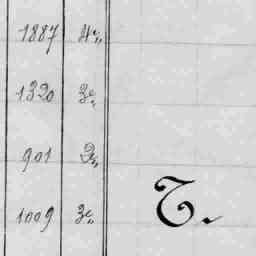 1887 4e„
1320 3e„
901 2„
1009 3e„
T.